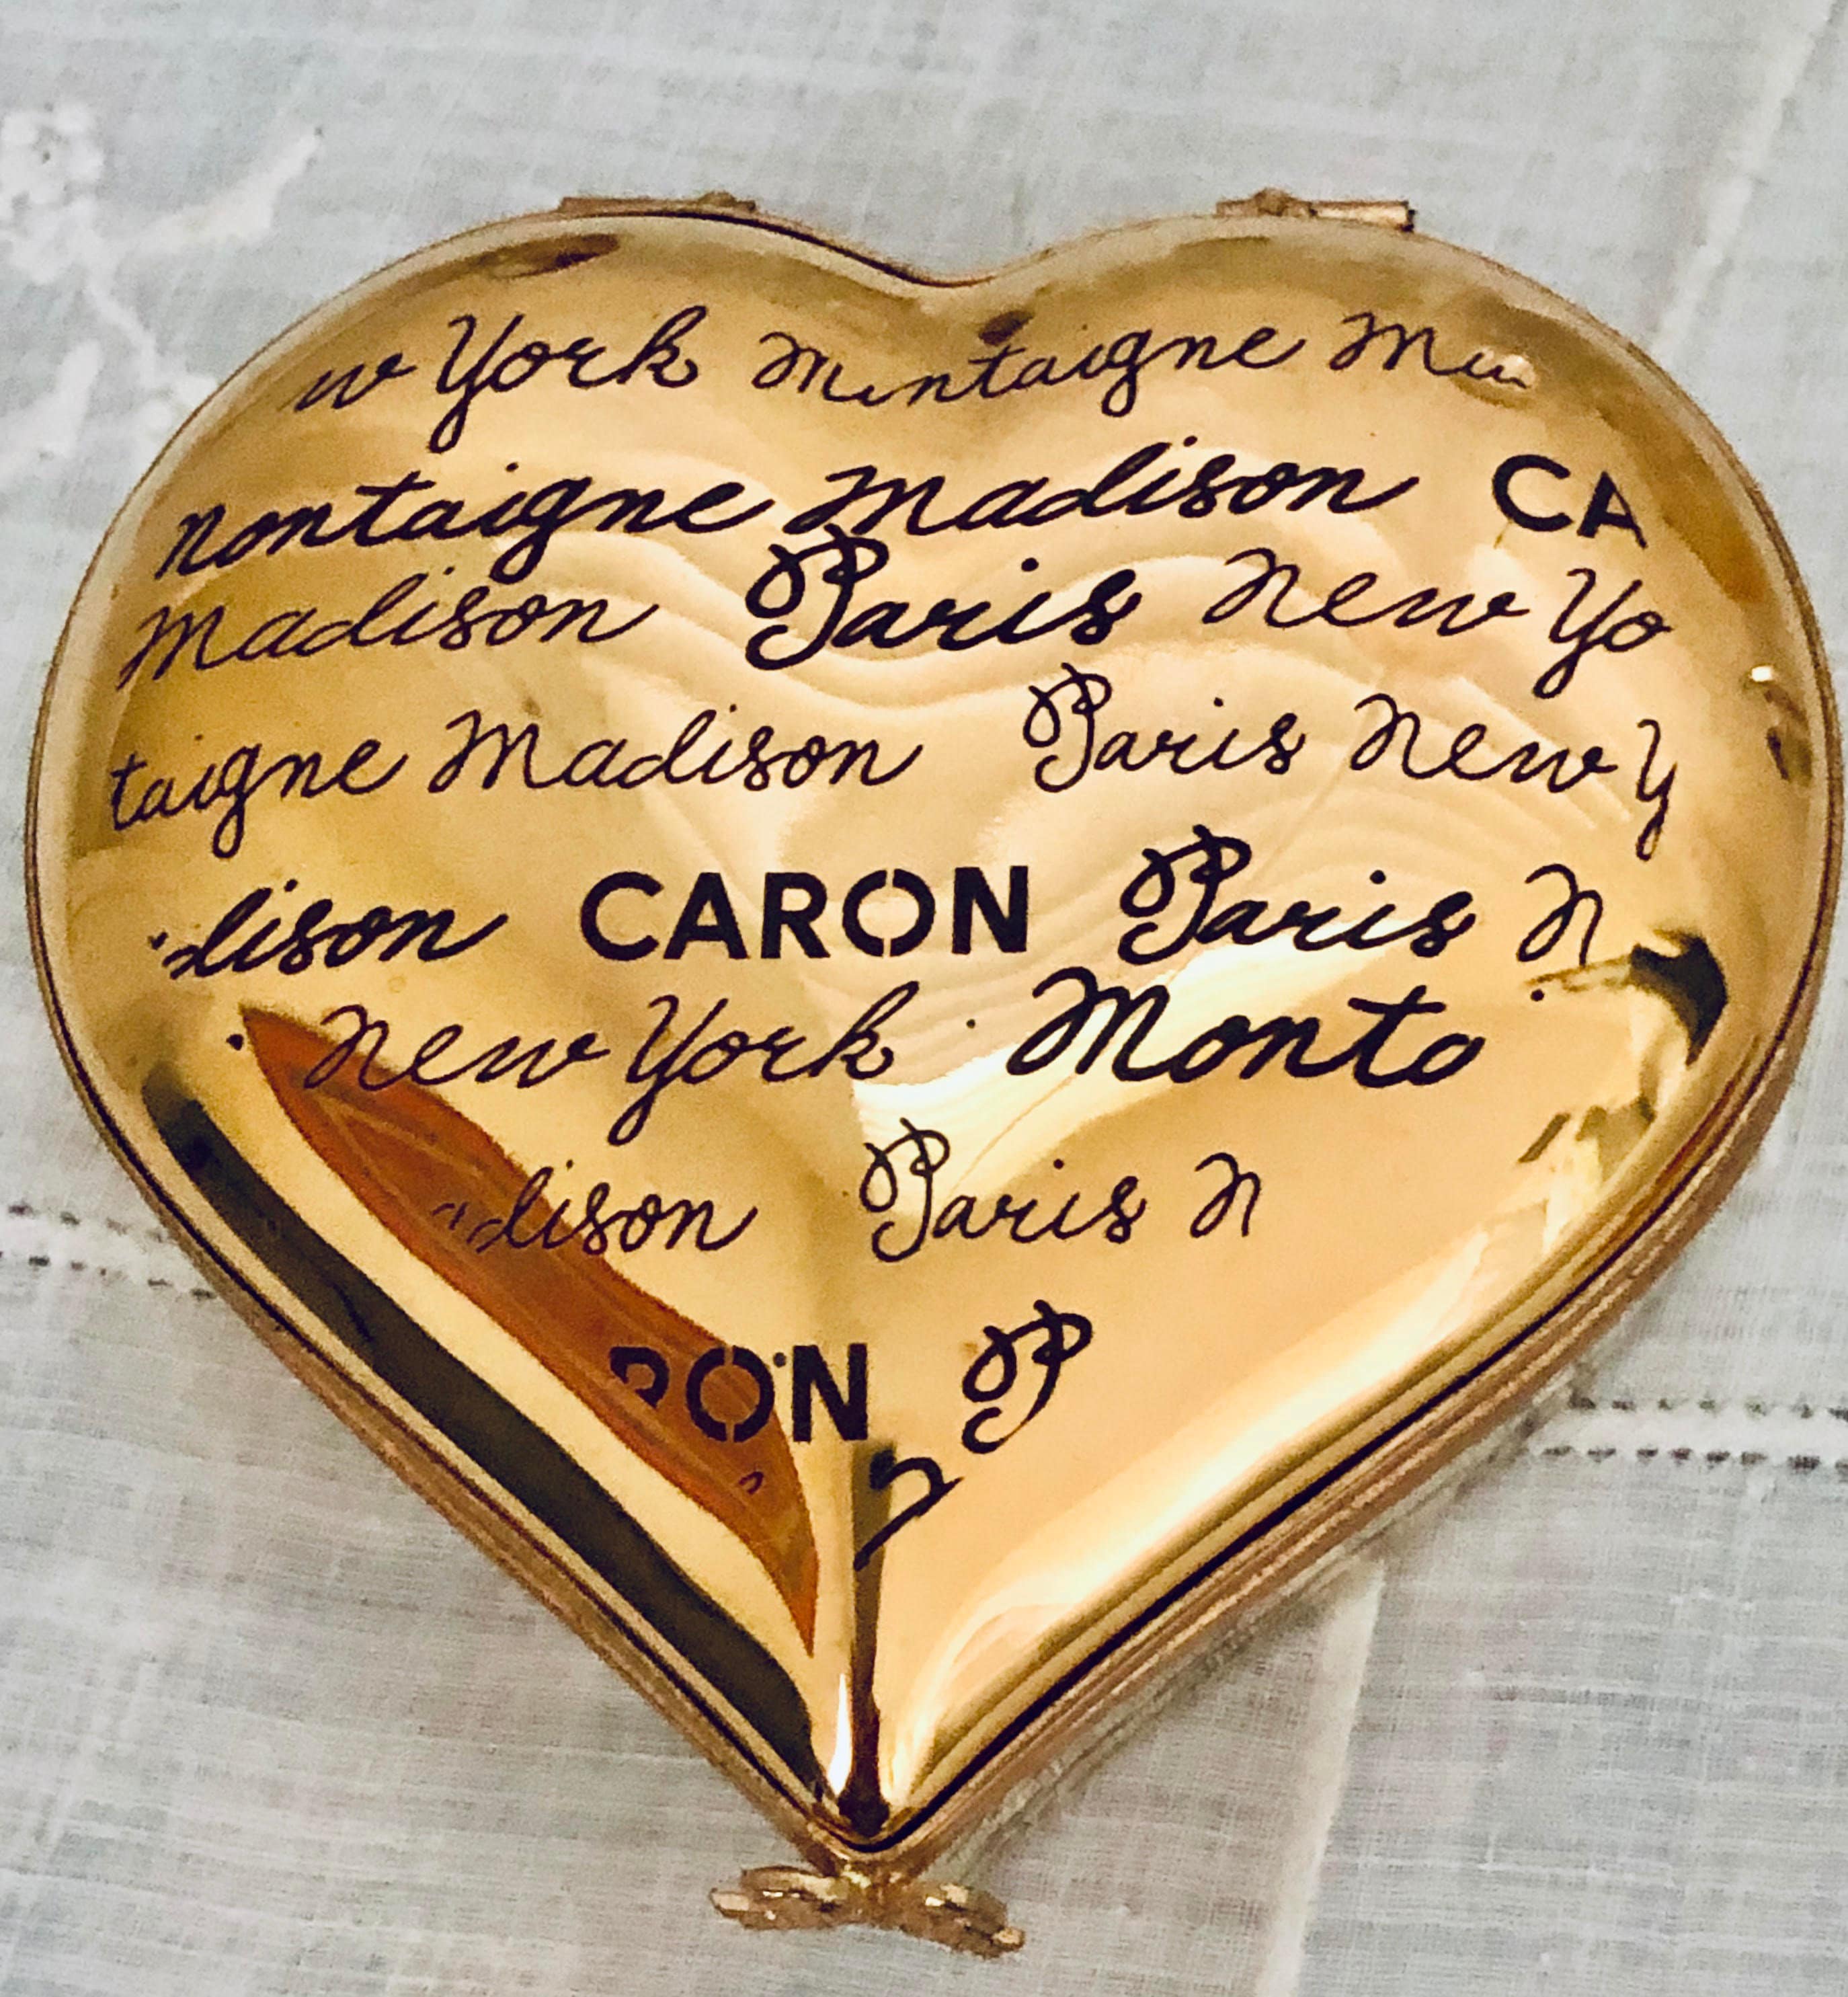 w York Montaigne M
Montaigne Madison CA
Madison Paris New Yo
taigne Madison Paris New Y
dison CARON Paris N
New York Monta
dison Paris N
RON P